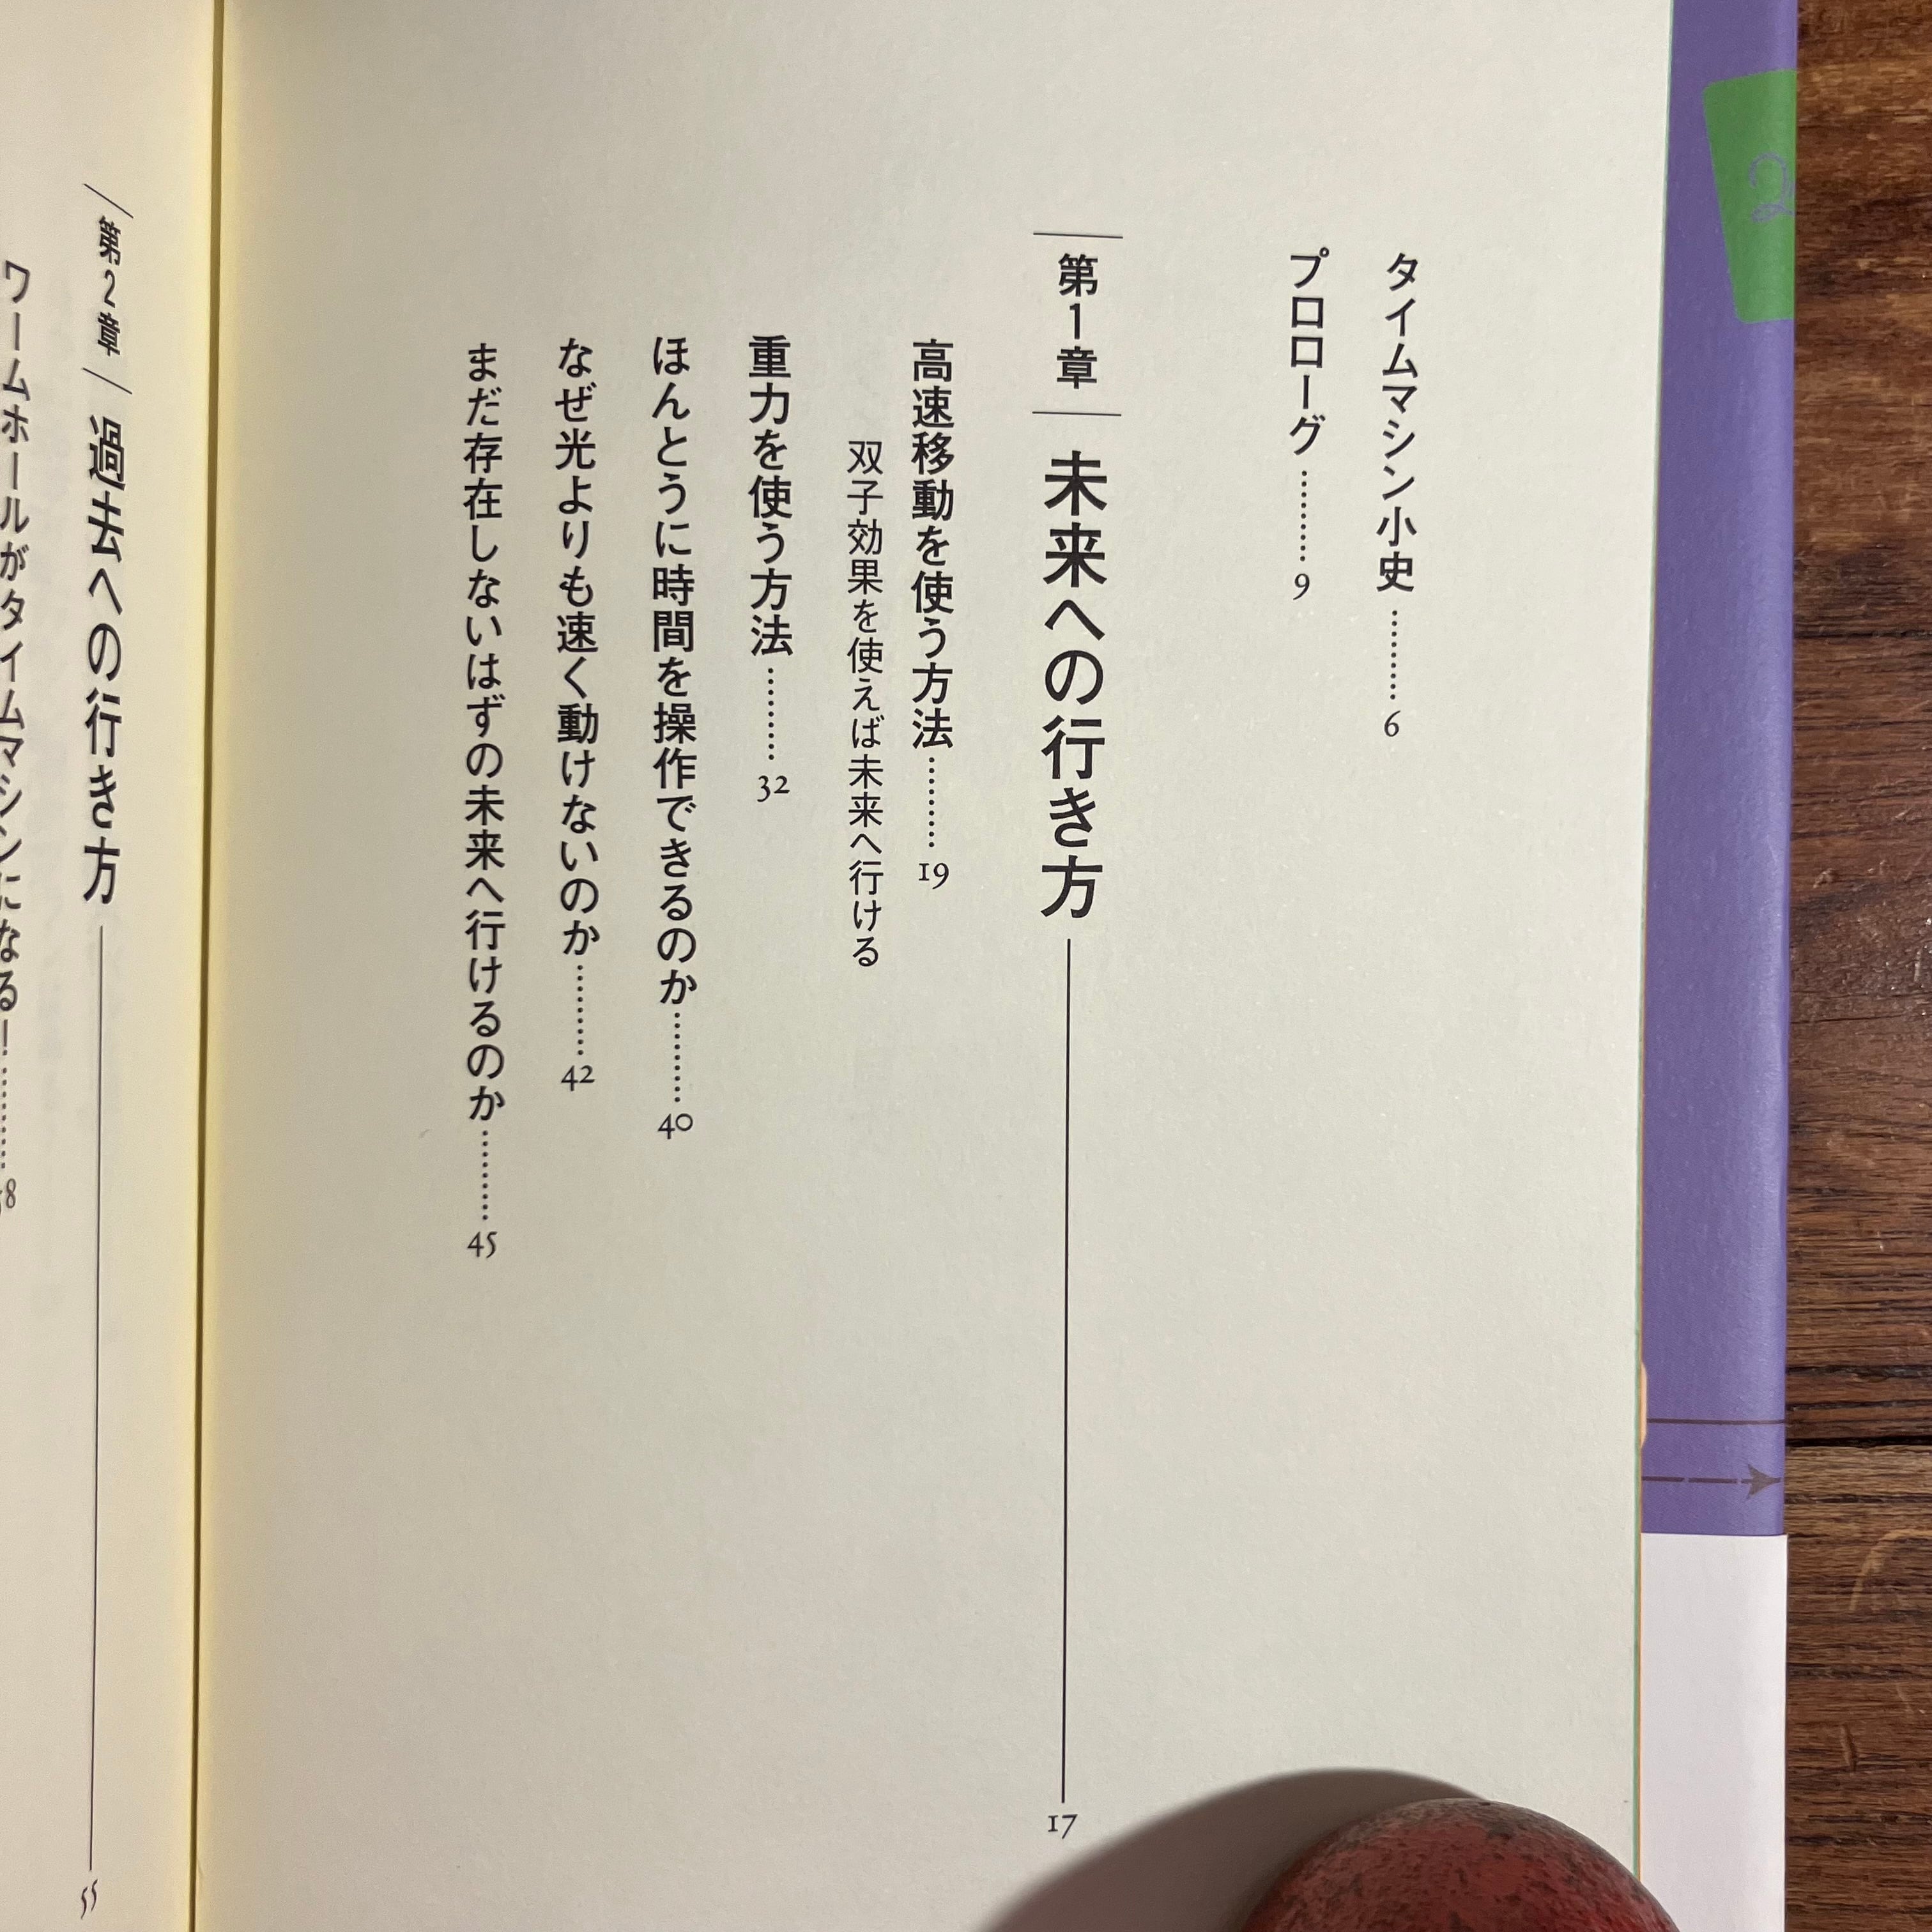 タイムマシン小史………6
プロローグ………9
第1章 未来への行き方 17
高速移動を使う方法………19
双子効果を使えば未来へ行ける
重力を使う方法………32
ほんとうに時間を操作できるのか………40
なぜ光よりも速く動けないのか………42
まだ存在しないはずの未来へ行けるのか………45
第2章 過去への行き方 55
ワームホールがタイムマシンになる!………
2